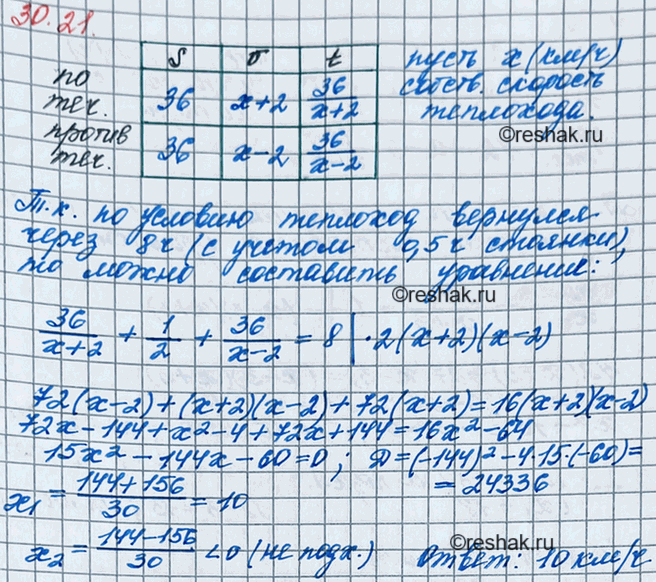 30.21.
S v t
по теч. 36 x+2 36/(x+2)
против теч. 36 x-2 36/(x-2)
пусть x (км/ч)
собств. скорость
теплохода.
©reshak.ru
Т.к. по условию теплоход вернулся
через 8ч (с учетом 0,5ч стоянки),
то можно составить уравнение:
©reshak.ru
36/(x+2) + 1/2 + 36/(x-2) = 8 | ·2(x+2)(x-2)
72(x-2)+(x+2)(x-2)+72(x+2)=16(x+2)(x-2)
72x-144+x²-4+72x+144=16x²-64
15x²-144x-60=0; D=(-144)²-4·15·(-60)=
= 24336
x₁ = (144+156)/30 = 10
x₂ = (144-156)/30 <0 (не подх.) Ответ: 10 км/ч.
©reshak.ru